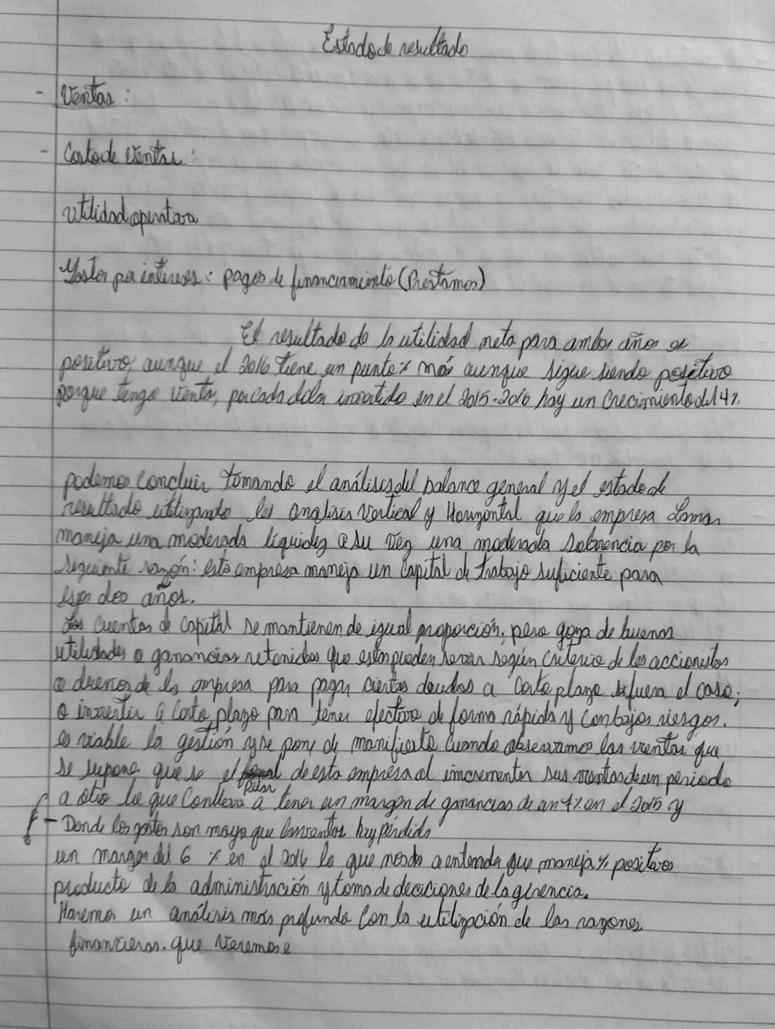 Estado de resultado
- Ventas :
- Costo de Ventas :
utilidad operativa
Gastos por intereses : pagos de financiamiento (Prestamos)
El resultado de la utilidad neta para ambos años es
positivo, aunque el 2016 tiene un punto % más aunque sigue siendo positivo
porque tengo venta, por cada dolar invertido en el 2015-2016 hay un Crecimiento del 4%.
podemos concluir tomando el análisis del balance general y el estado de
resultado utilizando los analisis Vertical y Horizontal que la empresa
maneja una moderada liquidez a su vez una moderada Solvencia por la
siguiente razón: esta empresa maneja un capital de trabajo suficiente para
esos dos años.
Las cuentas de capital se mantienen de igual proporción, pero goza de buenas
utilidades o ganancias retenidas que estas pueden servir según criterio de los accionistas
o dueños de la empresa para pagar ciertas deudas a corto plazo si fuera el caso;
o invertir a corto plazo para tener efectivo de forma rápida y con bajos riesgos.
es viable la gestión y se pone de manifiesto cuando observamos las ventas que
se supone que es el pilar de esta empresa al incrementar sus ventas de un periodo
a otro lo que conlleva a tener un margen de ganancias de un 4% en el 2015 y
- Donde los gastos son mayor que las ventas hay pérdida
un margen del 6 % en el 2016 lo que nos da a entender que maneja % positivos
producto de la administración y toma de decisiones de la gerencia.
Haremos un análisis más profundo con la utilización de las razones
financieras. que veremos e